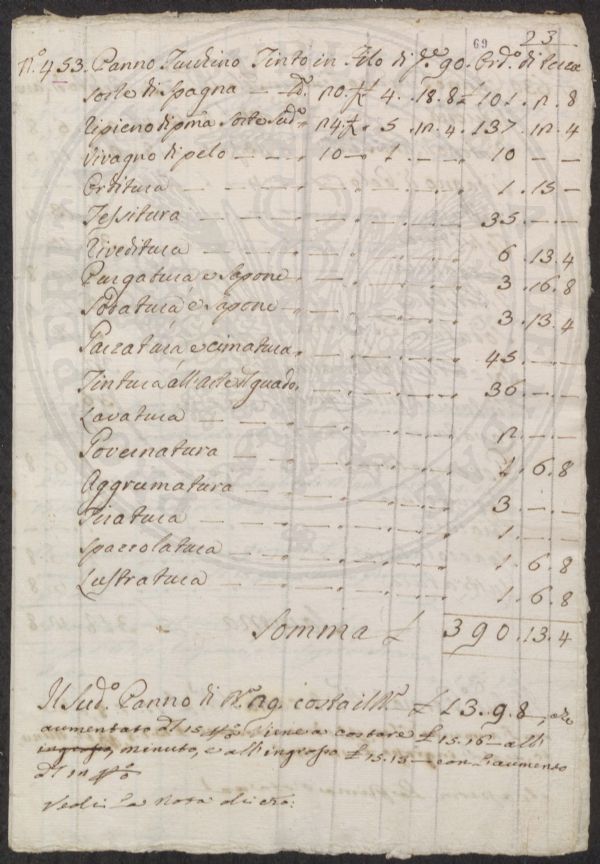 69 23
N.º 453. Panno Turchino Tinto in Pelo di pe 90. Ord.º di terza
sorte di Spagna — — n0. 4. 18. 8 £ 101. n. 8
Ripieno di pma sorte Sud.º n4 5. n. 4. 137. n. 4
Vivagno di pelo — — — 10 — 1. — — 10 — —
Orditura — — — 1. 15 —
Tessitura — — — 35. — —
Riveditura — — — 6. 13. 4
Purgatura e Sapone — — 3. 16. 8
Sodatura e Sapone — — 3. 13. 4
Garzatura e cimatura — 45. — —
Tintura all'arte di guado, — 36. — —
Lavatura — — — n. — —
Governatura — — 1. 6. 8
Aggrumatura — — 3 — —
Tiratura — — — 1. — —
Spazzolatura — — 1. 6. 8
Lustratura — — — 1. 6. 8
Somma £ 390. 13. 4
Il Sud.º Panno di costa il £ 13. 9. 8 —, che
aumentato di 15 viene a costare £ 15. 16 — all'
ingrosso, minuto, e all'ingrosso £ 15. 15 — con l'aumento
di 
Vedi la Nota di ciò.